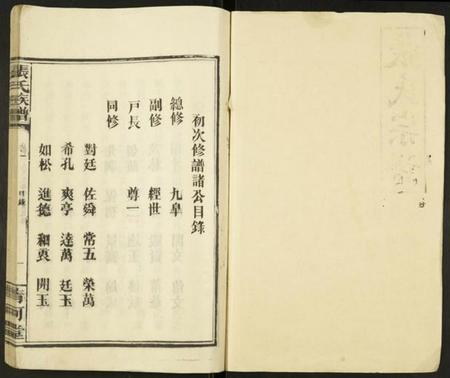 初次修譜諸公目錄
總修 九臯
副修 經世
戸長 尊一
同修
對廷 佐舜 常五 榮萬
希孔 爽亭 達萬 廷玉
如松 進德 和衷 開玉
張氏族譜
卷一
目錄
一
清河堂
張氏宗譜